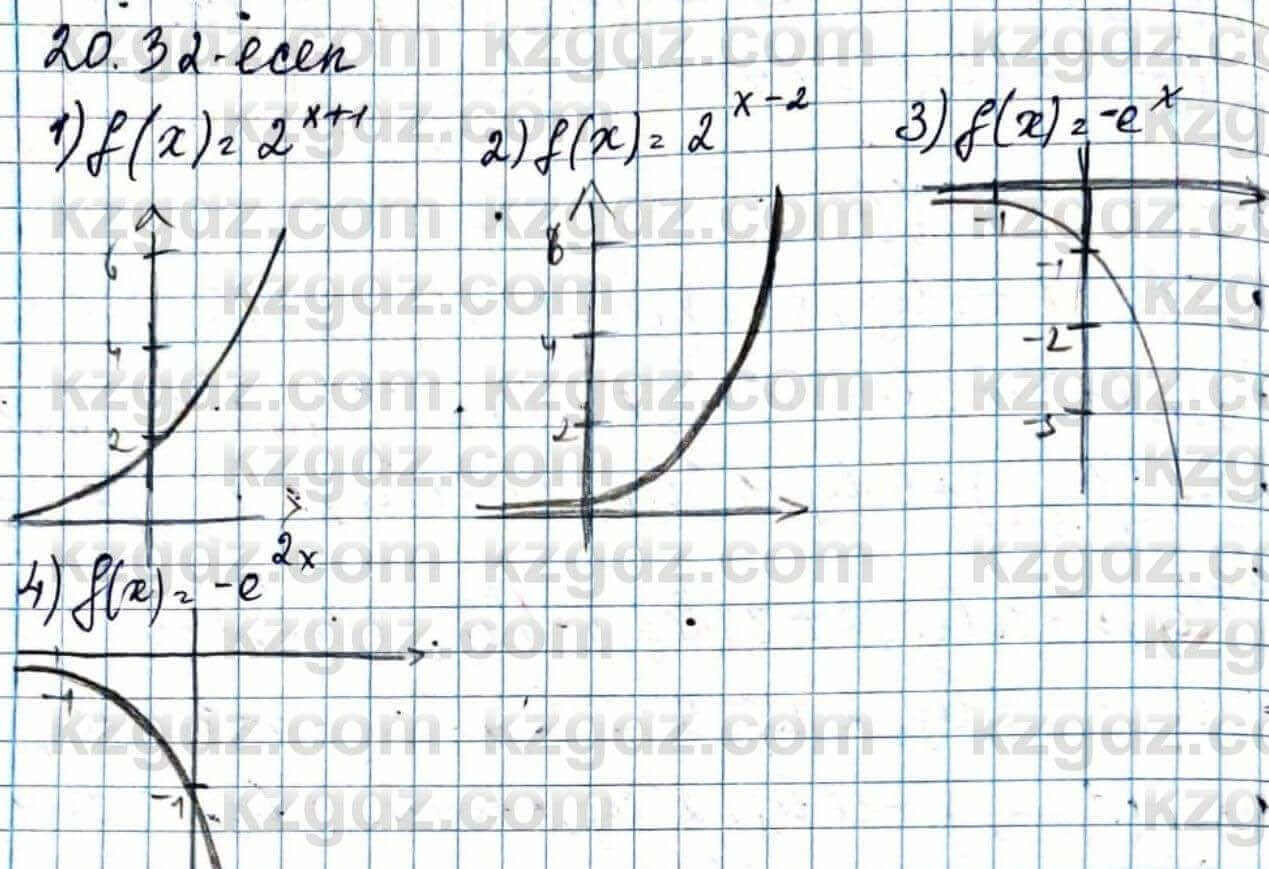 20.32-есеп
1) f(x) = 2^{x+1}
2) f(x) = 2^{x-2}
3) f(x) = -e^x
6
4
2
8
4
2
-1
-1
-2
-3
4) f(x) = -e^{2x}
-1
-1
kzgdz.com